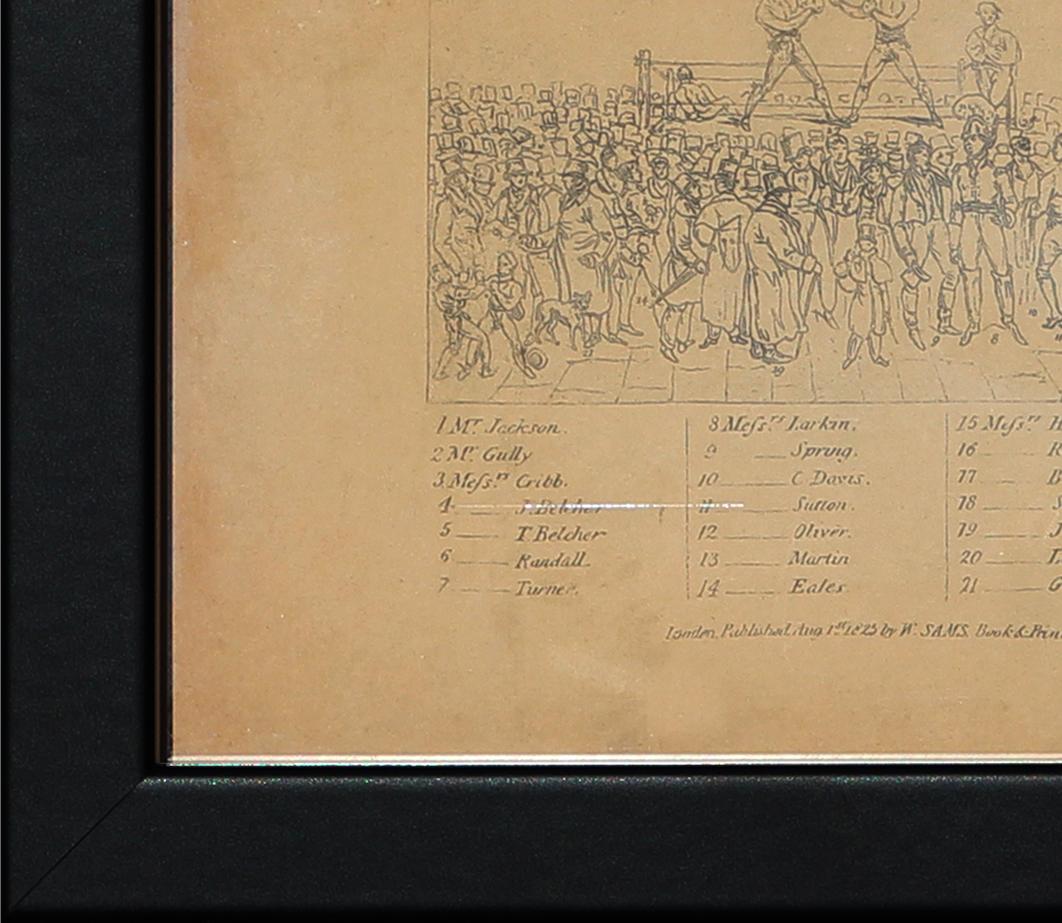 1 Mr. Jackson.
2 Mr. Gully
3 Mefs.rs Cribb.
4 J. Belcher
5 T. Belcher
6 Randall
7 Turner.
8 Mefs.rs Larkin.
9 Spring.
10 C. Davis.
11 Sutton.
12 Oliver.
13 Martin
14 Eales
15 Mefs.rs
16
17
18
19
20
21
London, Published, Aug. 1st 1825 by W. SAMS, Book &